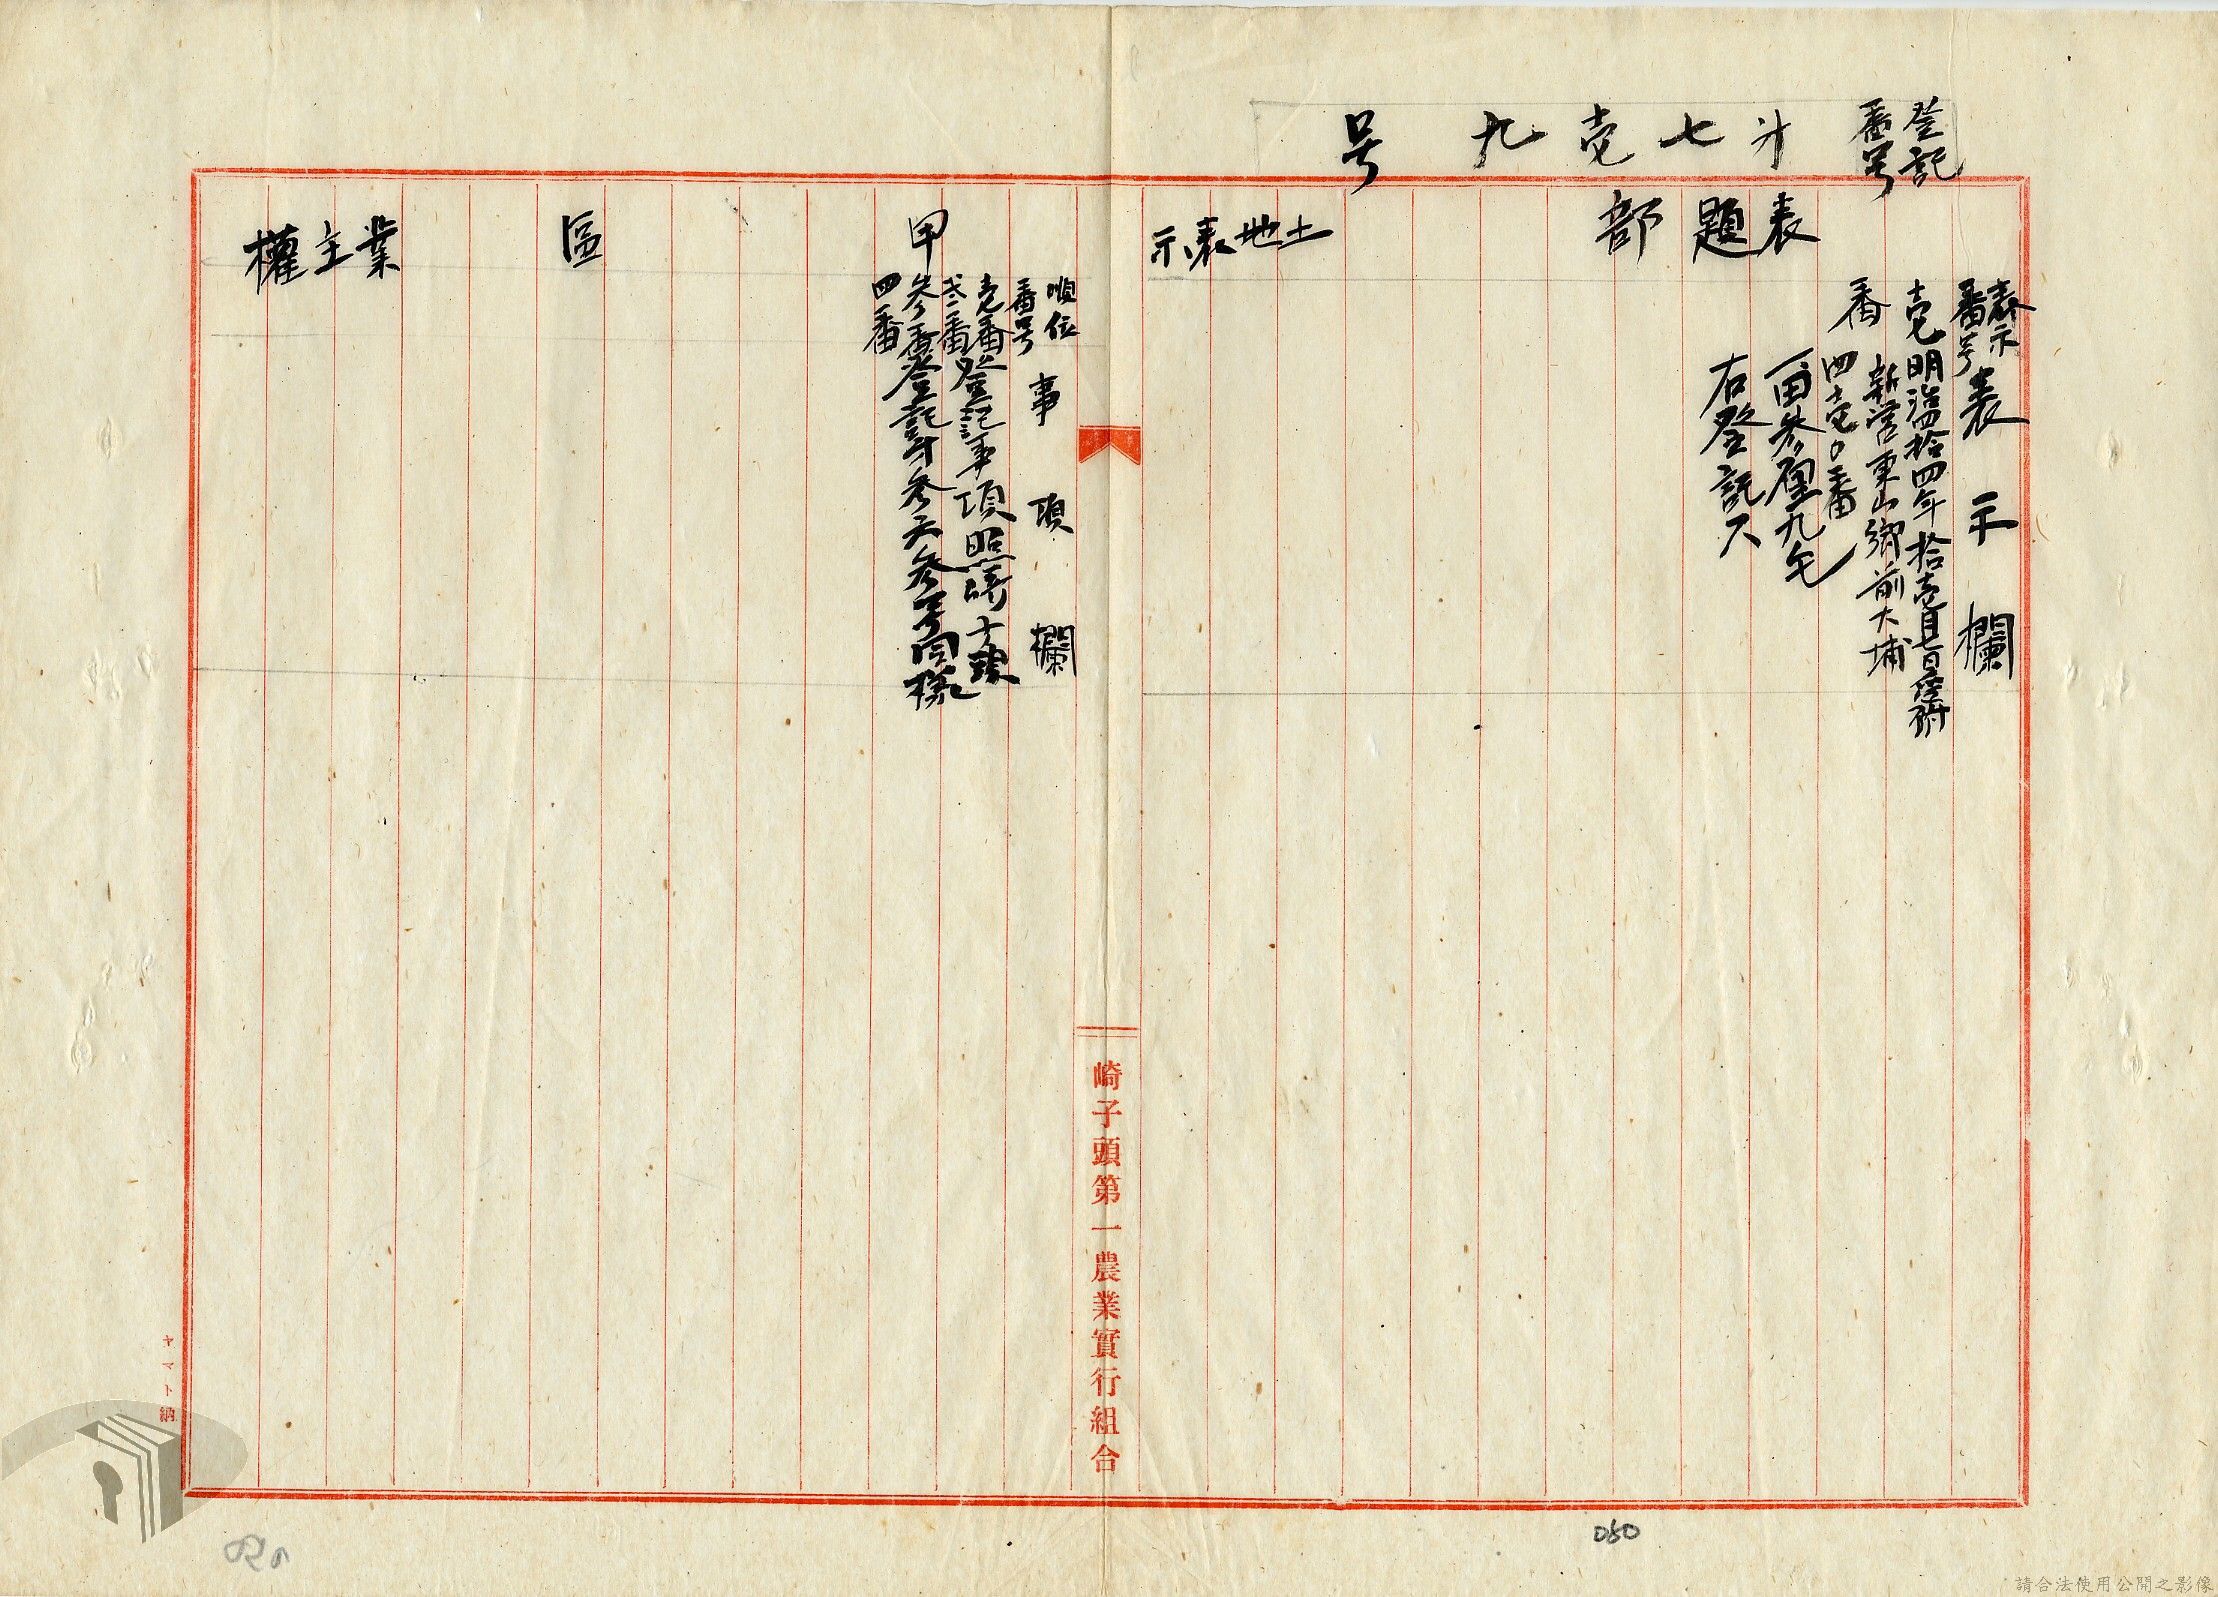 登記
番号
才七壱九号
表題部
土地表示
表示
番号
表示欄
壱
番
明治四拾四年拾壱月七日受附
新営東山鄉前大埔
四壱〇番
一田参厘九毛
右登記ス
甲
區
業主權
順位
番号
事項欄
壱番
弐番
登記事項照
参番
四番
登記才参六参号同様
崎子頭第一農業實行組合
ヤマト納
050
051
請合法使用公開之影像